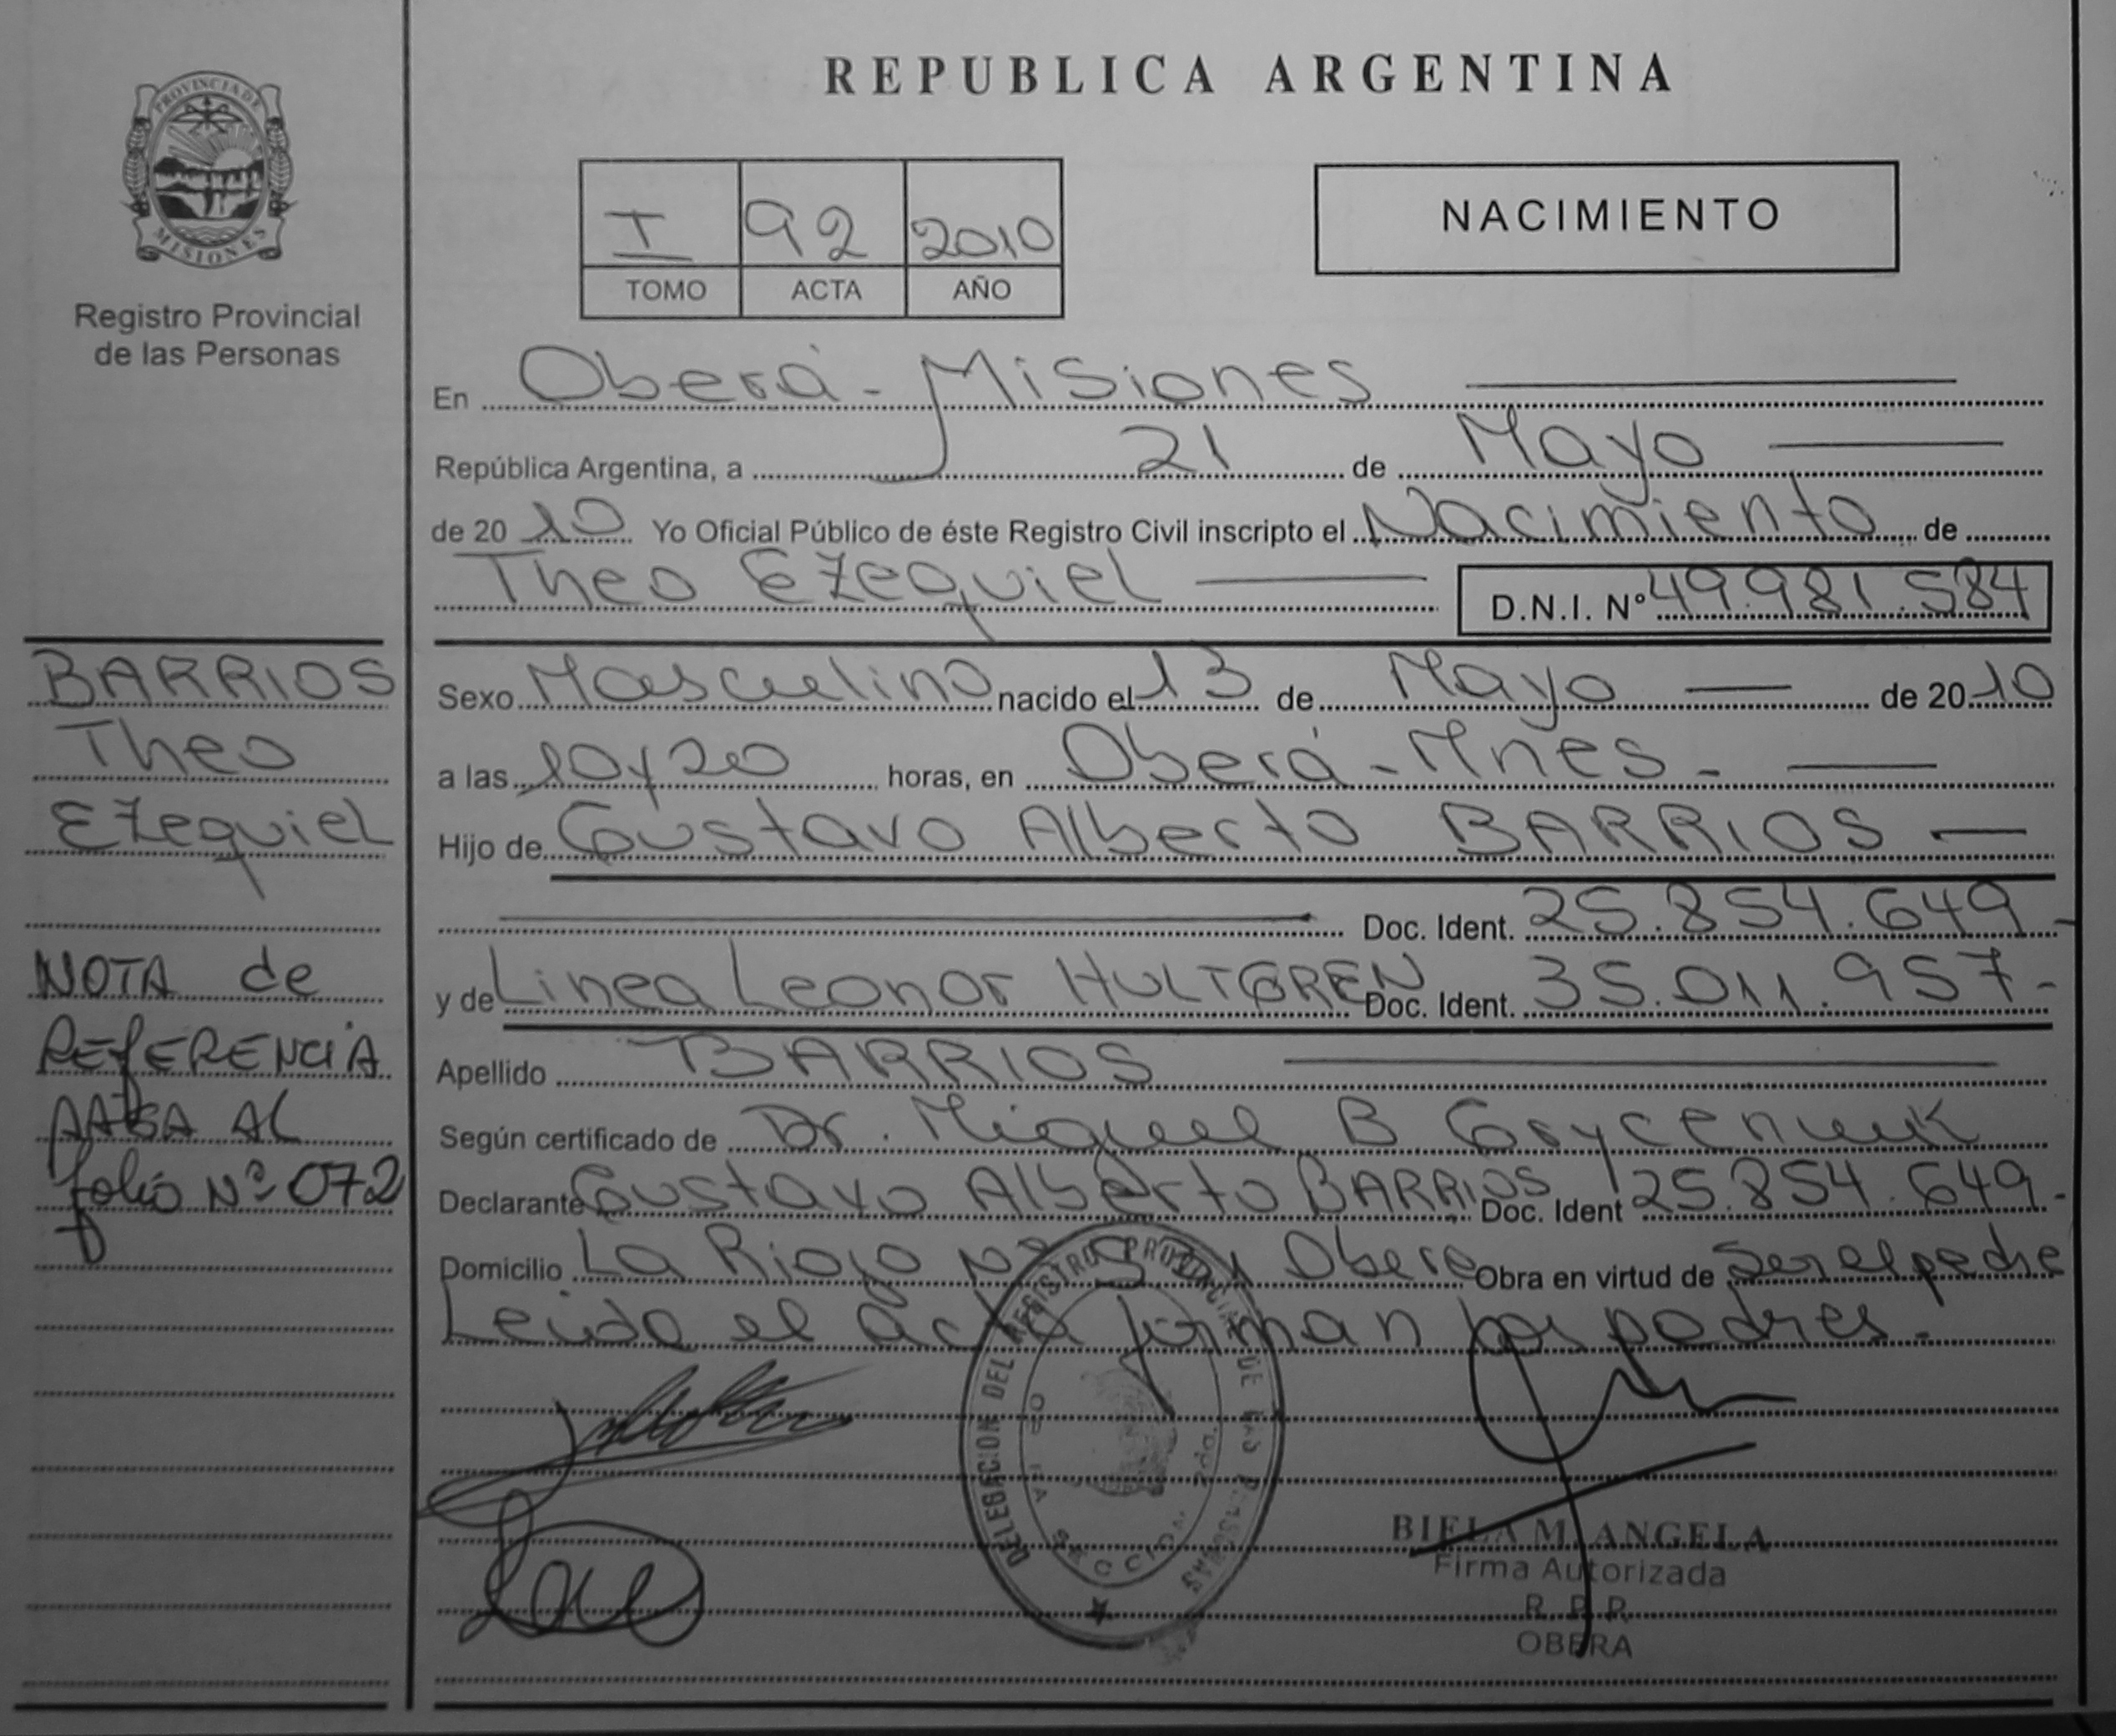 REPUBLICA ARGENTINA
PROVINCIA DE
MISIONES
Registro Provincial
de las Personas
I 92 2010
TOMO ACTA AÑO
NACIMIENTO
En Oberá - Misiones
República Argentina, a 21 de Mayo
de 20 10 Yo Oficial Público de éste Registro Civil inscripto el Nacimiento de
Theo Ezequiel D.N.I. Nº 49.981.584
BARRIOS
Theo
Ezequiel
NOTA de
REFERENCIA
AL
folio Nº 072
Sexo Masculino nacido el 13 de Mayo de 20 10
a las 10y20 horas, en Oberá - Mnes -
Hijo de Gustavo Alberto BARRIOS
Doc. Ident. 25.854.649-
y de Linea Leonor HULTGREN Doc. Ident. 35.011.957-
Apellido BARRIOS
Según certificado de Dr. Miguel B
Declarante Gustavo Alberto BARRIOS Doc. Ident 25.854.649-
Domicilio La Rioja Nº Obera Obra en virtud de ser el padre
Leida el acta firman los padres.-
DELEGACION DEL REGISTRO PROVINCIAL DE LAS PERSONAS
SECCION 2da.
BIELA M. ANGELA
Firma Autorizada
R. P. P.
OBERA